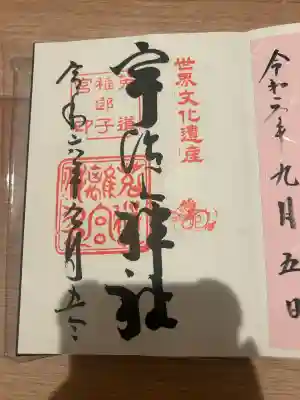 世界文化遺産
宇治神社
菟道稚郎子宮印
菟道離宮
令和六年九月五日
令和六年九月五日